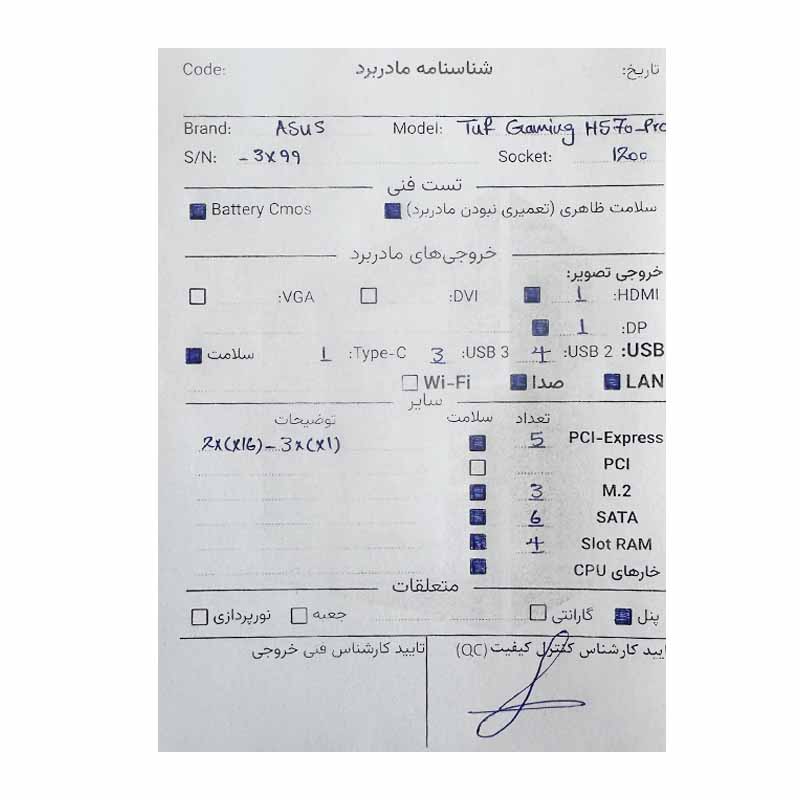 Code: شناسنامه مادربرد تاریخ:
Brand: ASUS Model: TUF Gaming H570_Pro
S/N: - 3X99 Socket: 1200
تست فنی
سلامت ظاهری (تعمیری نبودن مادربرد) Battery Cmos
خروجی‌های مادربرد
خروجی تصویر:
HDMI: 1 DVI: VGA:
DP: 1
USB: USB 2: 4 USB 3: 3 Type-C: 1 سلامت
LAN صدا Wi-Fi
سایر
تعداد سلامت توضیحات
PCI-Express 5 2x(x16)_3x(x1)
PCI
M.2 3
SATA 6
Slot RAM 4
خارهای CPU
متعلقات
پنل گارانتی جعبه نورپردازی
یید کارشناس کنترل کیفیت (QC) تایید کارشناس فنی خروجی